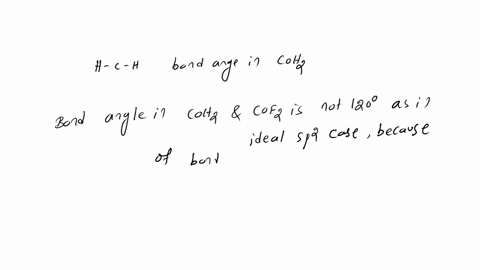 H-C-H bond ange in COH2
Bond angle in COH2 & COF2 is not 120° as in
ideal sp2 case, because
of bond